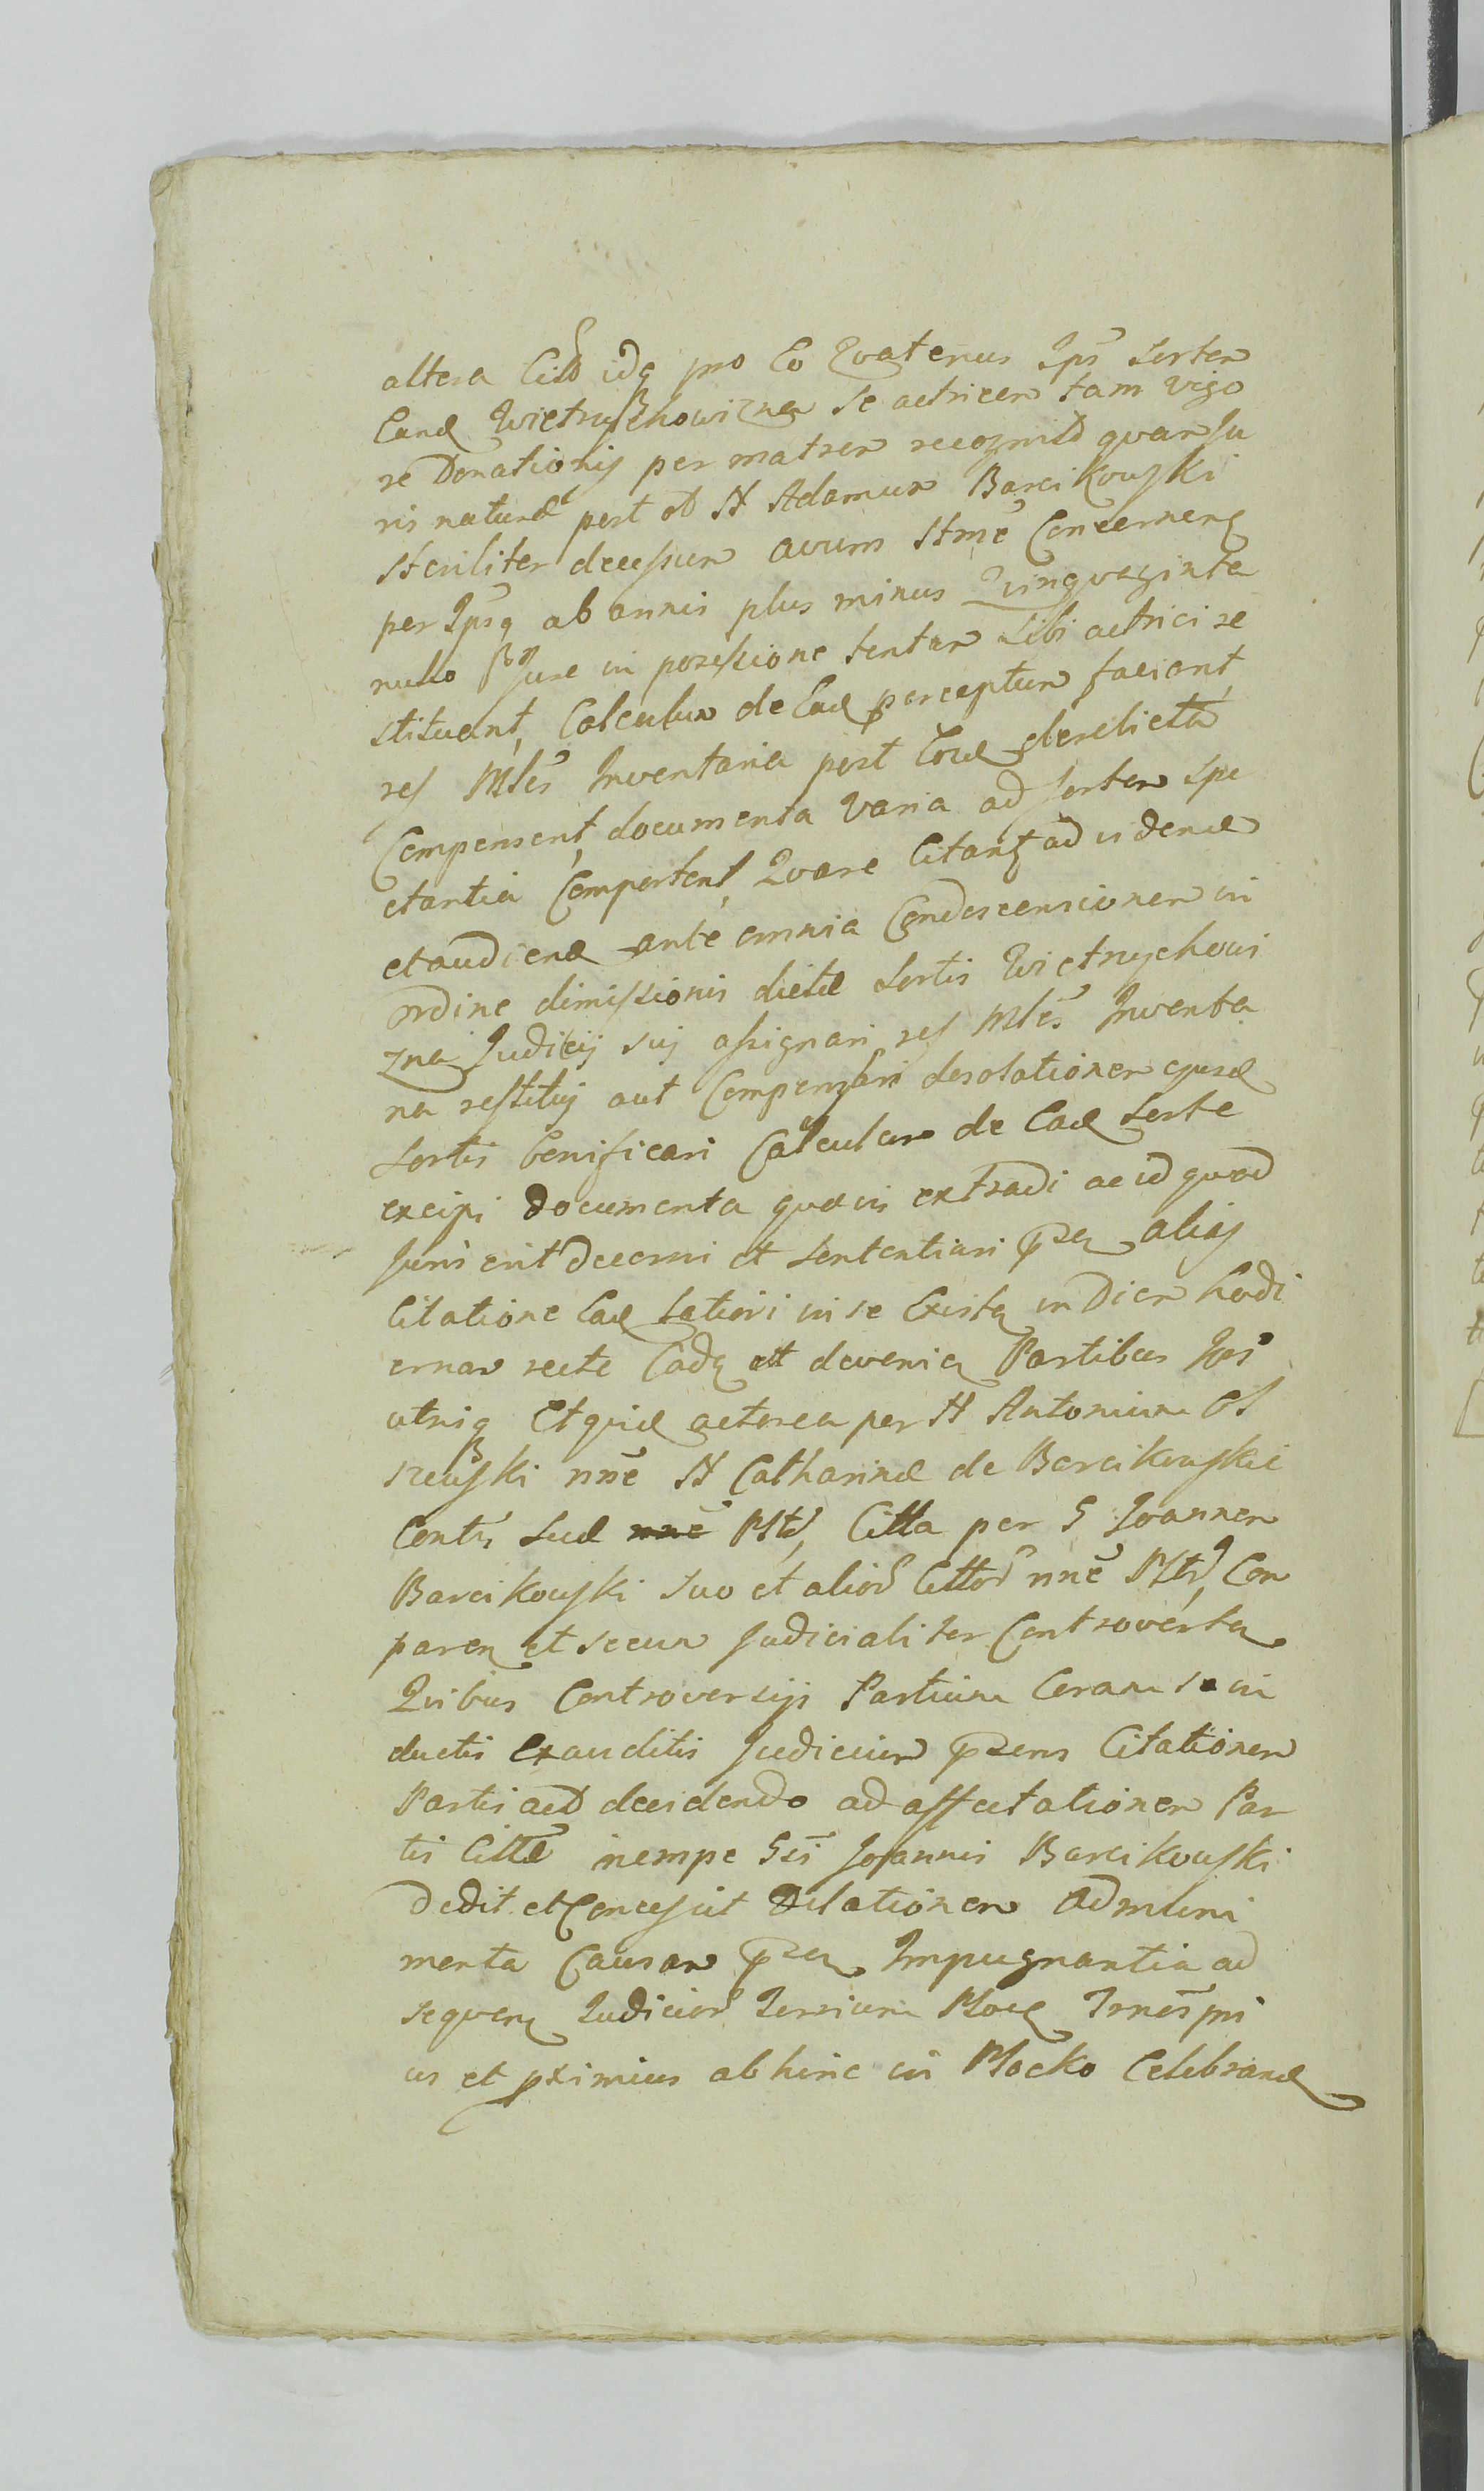 altera Citt idq pro Eo Qvatenus Ips Sorten
Eand Wietrzychowizna se actricem tam vigo
re Donationis per matrem recognit quam Ju
ris naturæ post ob N Adamum Barcikowski
steriliter decessum avum stme Concernen
per Ipsos ab annis plus minus Qvinqvaginta
nullo Jure in possessione tentam Sibi actrici re
stituant, Calculum de Ead perceptum faciant
res Mles Inventaria post Eoru derelicta
Compensent, documenta Varia ad sortem spe
ctantia Comportent, Qvare Citantr ad videnđ
et audiend ante omnia Condescensionem in
ordine dimissionis dictæ Sortis Wietrzychowi
zna Judicij sui assignari res Mles Inventa
ria restitui aut Compensari desolationem ejusd
Sortis Verificari Calculum de Ead Sorte
excipi documenta quævis extradi ac id quod
Juris erit decerni et sententiari prn alias
Citatione Ead latiori in se Existen in Diem hodi
ernam recte Cadn et devenien Partibus Ips
utrisq Et quid actorea per N Antonium Ol
szewski nne N Catharinæ de Barcikowskie
Contis Suæ Pltr, Citta per G Joannem
Barcikowski suo et alior Cittor nne Pltr, Com
paren et secum Judicialiter Controverten
Qvibus Controversijs Partium Coram se in
ductis Exauditis Judicium præsens Citationem
Partis act decidendo ad affectationem Par
tis Cittæ nempe Gsi Joannis Barcikowski
dedit et Concessit Dilationem Ad muni
menta Causam prn Impugnantia ad
sequen Judicior Terrium Ploc Trnos pri
us et pximius abhinc in Płocko Celebrand